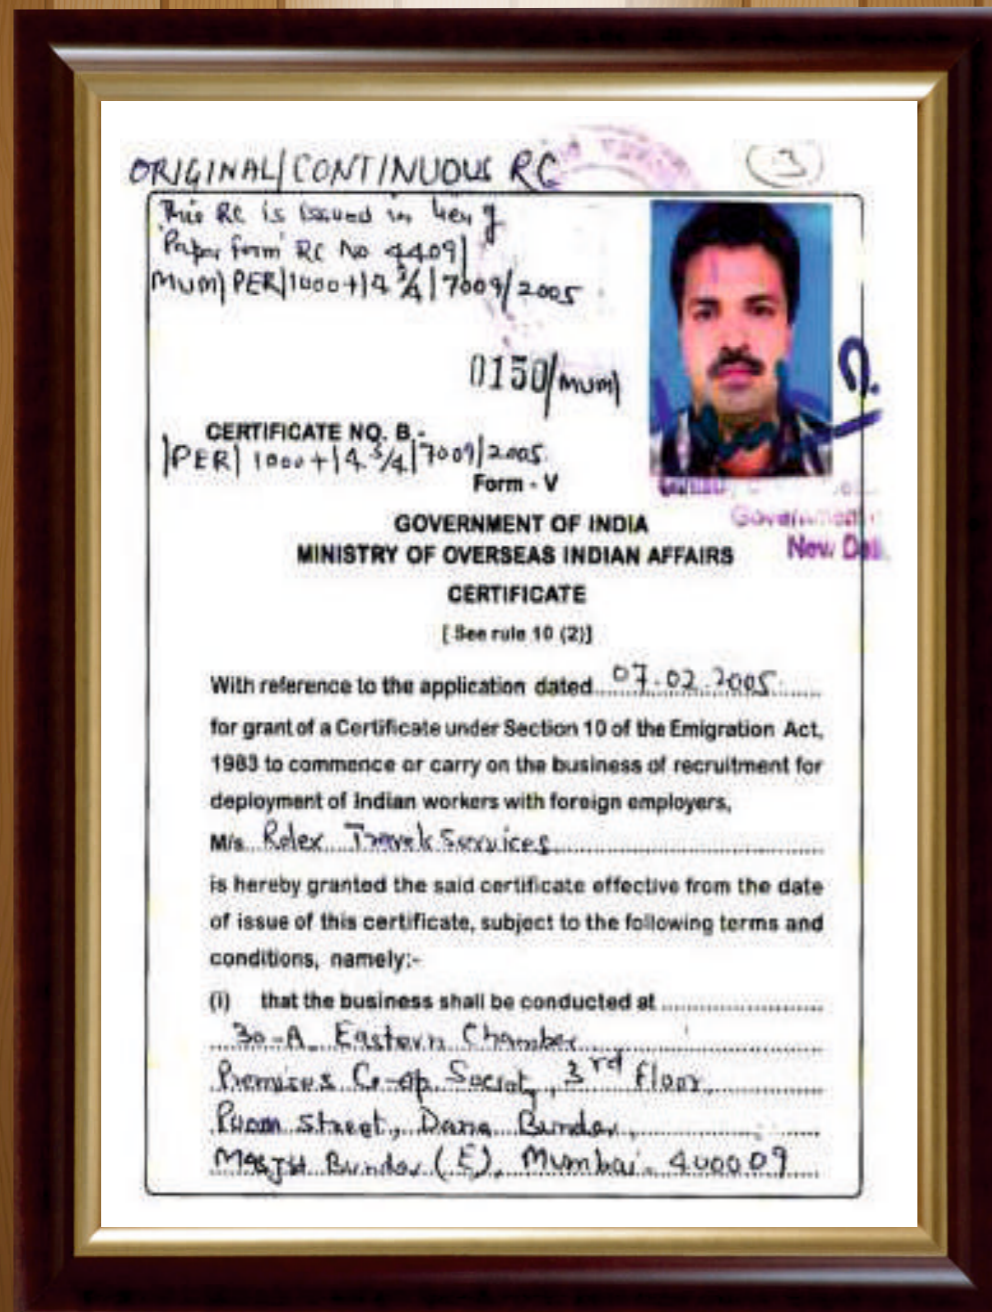 ORIGINAL/CONTINUOUS RC
3
This RC is issued in lieu of
'Paper form' RC No 4409/
MUM/PER/1000+/4 3/4/7009/2005
0150/MUM/
CERTIFICATE NO. B.-
/PER/1000+/4.3/4/7009/2005
Form - V
Govern
New Del
GOVERNMENT OF INDIA
MINISTRY OF OVERSEAS INDIAN AFFAIRS
CERTIFICATE
[ See rule 10 (2)]
With reference to the application dated 07.02.2005
for grant of a Certificate under Section 10 of the Emigration Act,
1983 to commence or carry on the business of recruitment for
deployment of Indian workers with foreign employers,
M/s Rolex Travels Services
is hereby granted the said certificate effective from the date
of issue of this certificate, subject to the following terms and
conditions, namely:-
(i) that the business shall be conducted at
30-A Eastern Chamber
Premises Co-op Society, 3rd Floor,
Street, Dana Bunder,
Masjid Bunder (E), Mumbai. 400009